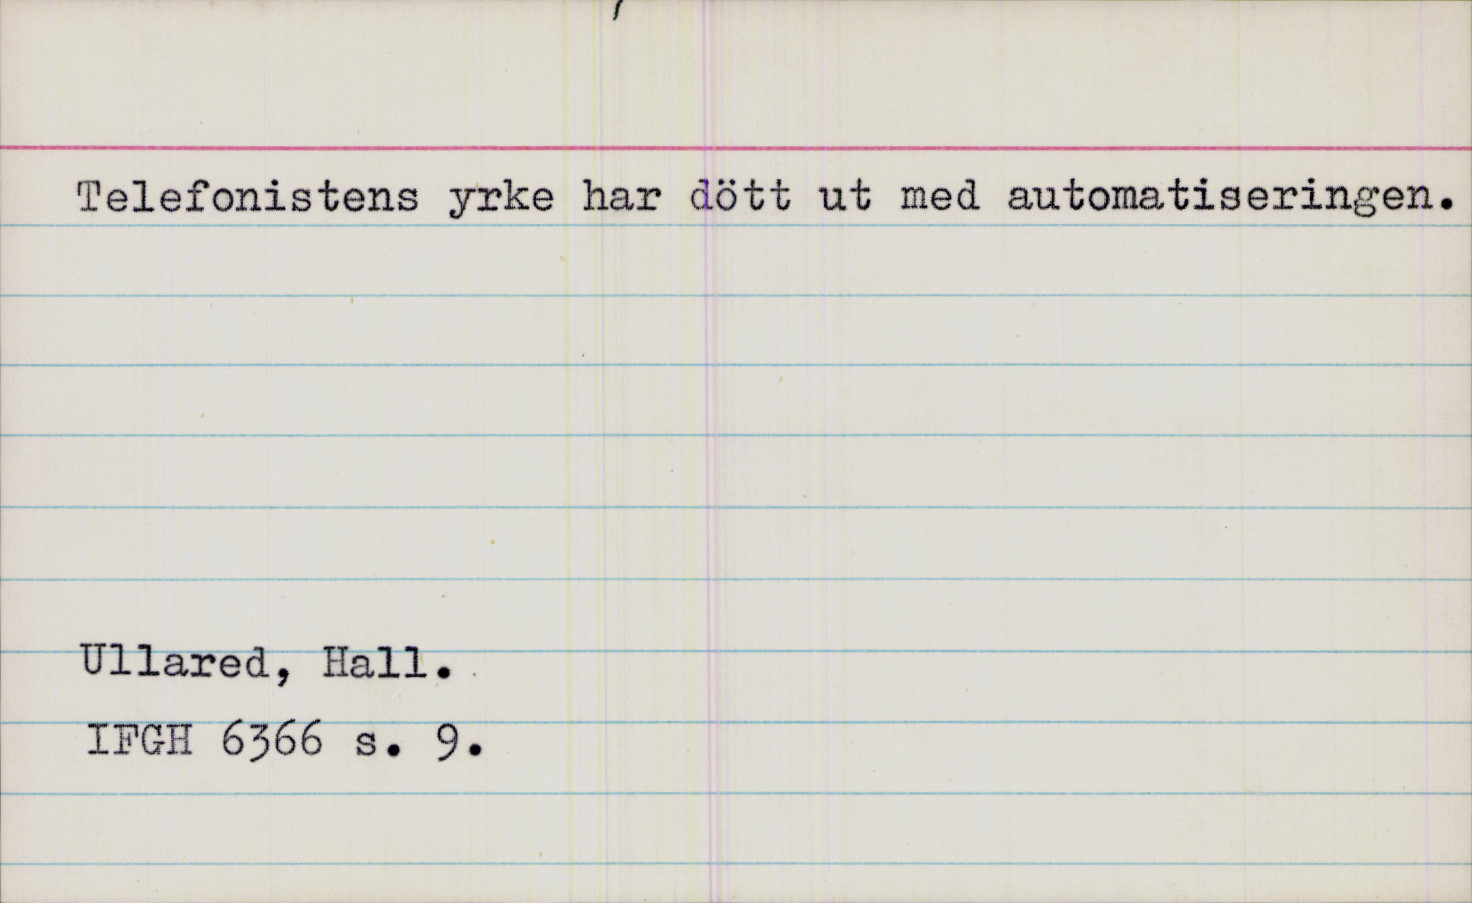 Telefonistens yrke har dött ut med automatiseringen.
Ullared, Hall.
IFGH 6366 s. 9.